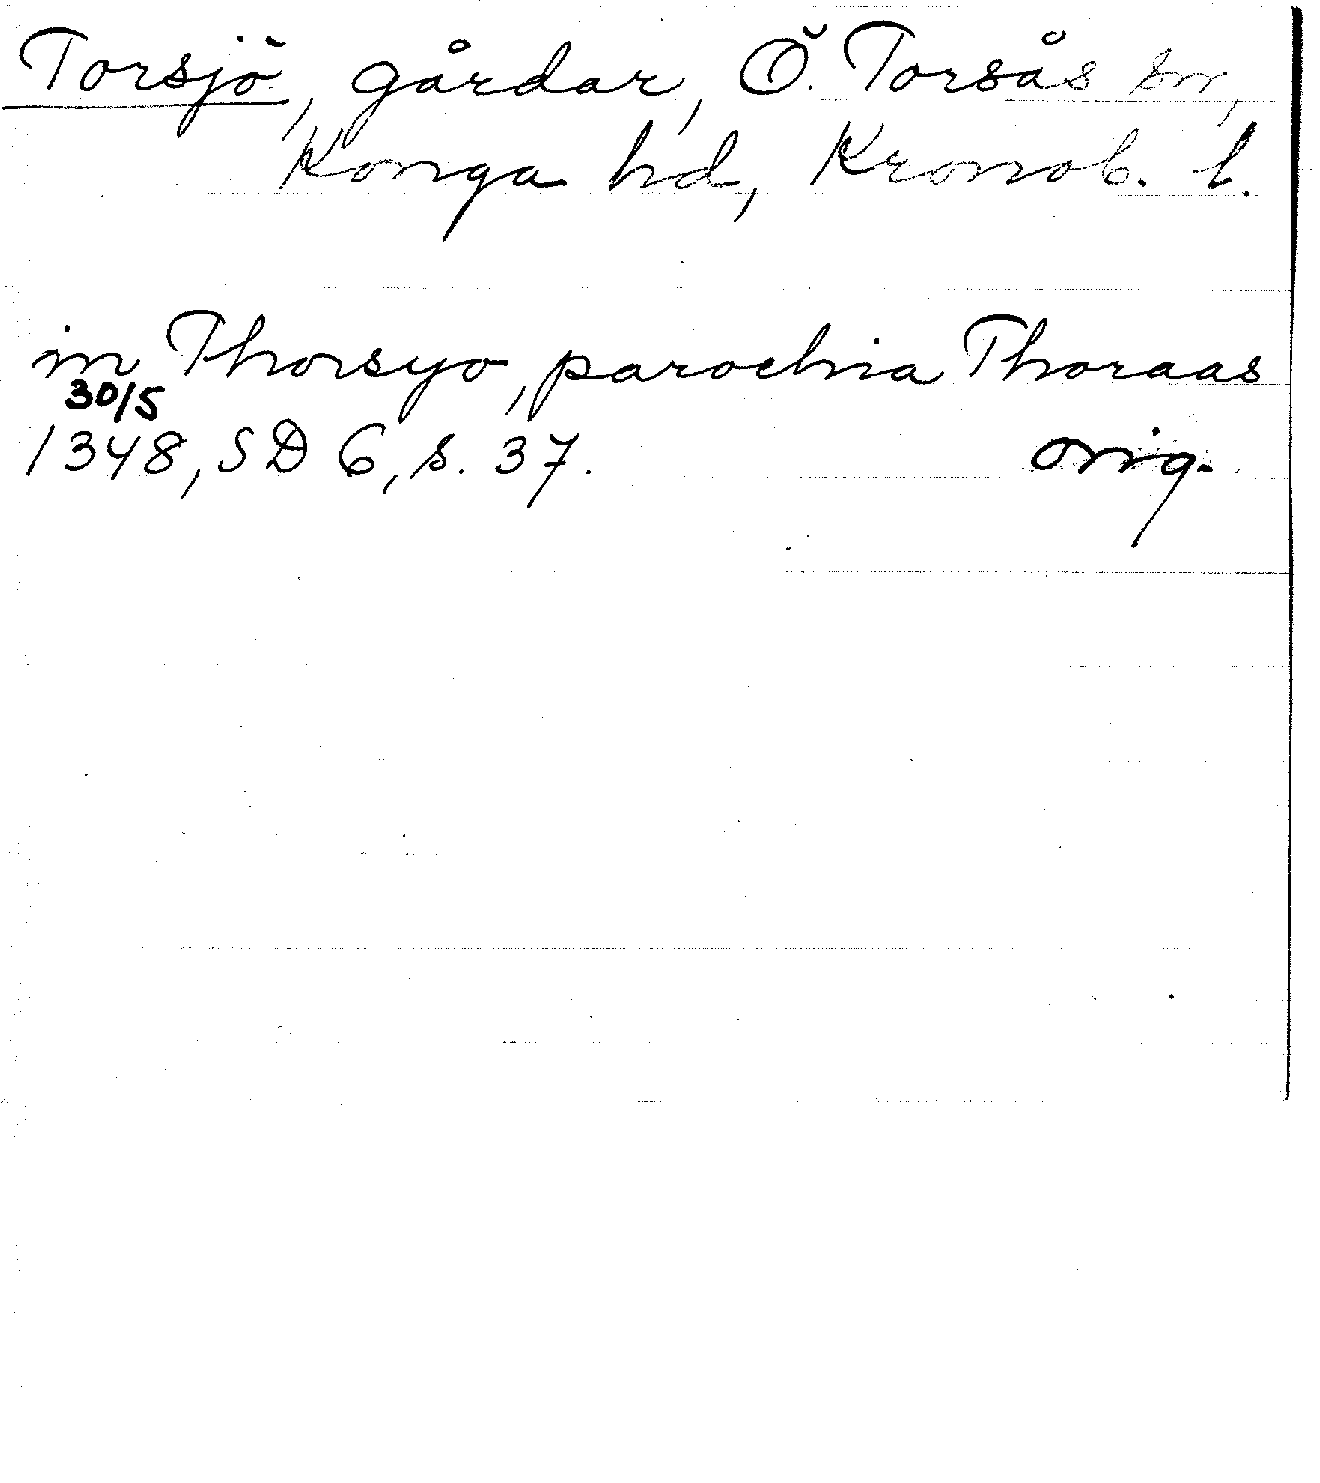 Torsjö, gårdar, Ö. Torsås sn,
Konga hd, Kronob. l.
in Thorsyo, parochia Thoraas
30/5
1348, SD 6, s. 37. orig.